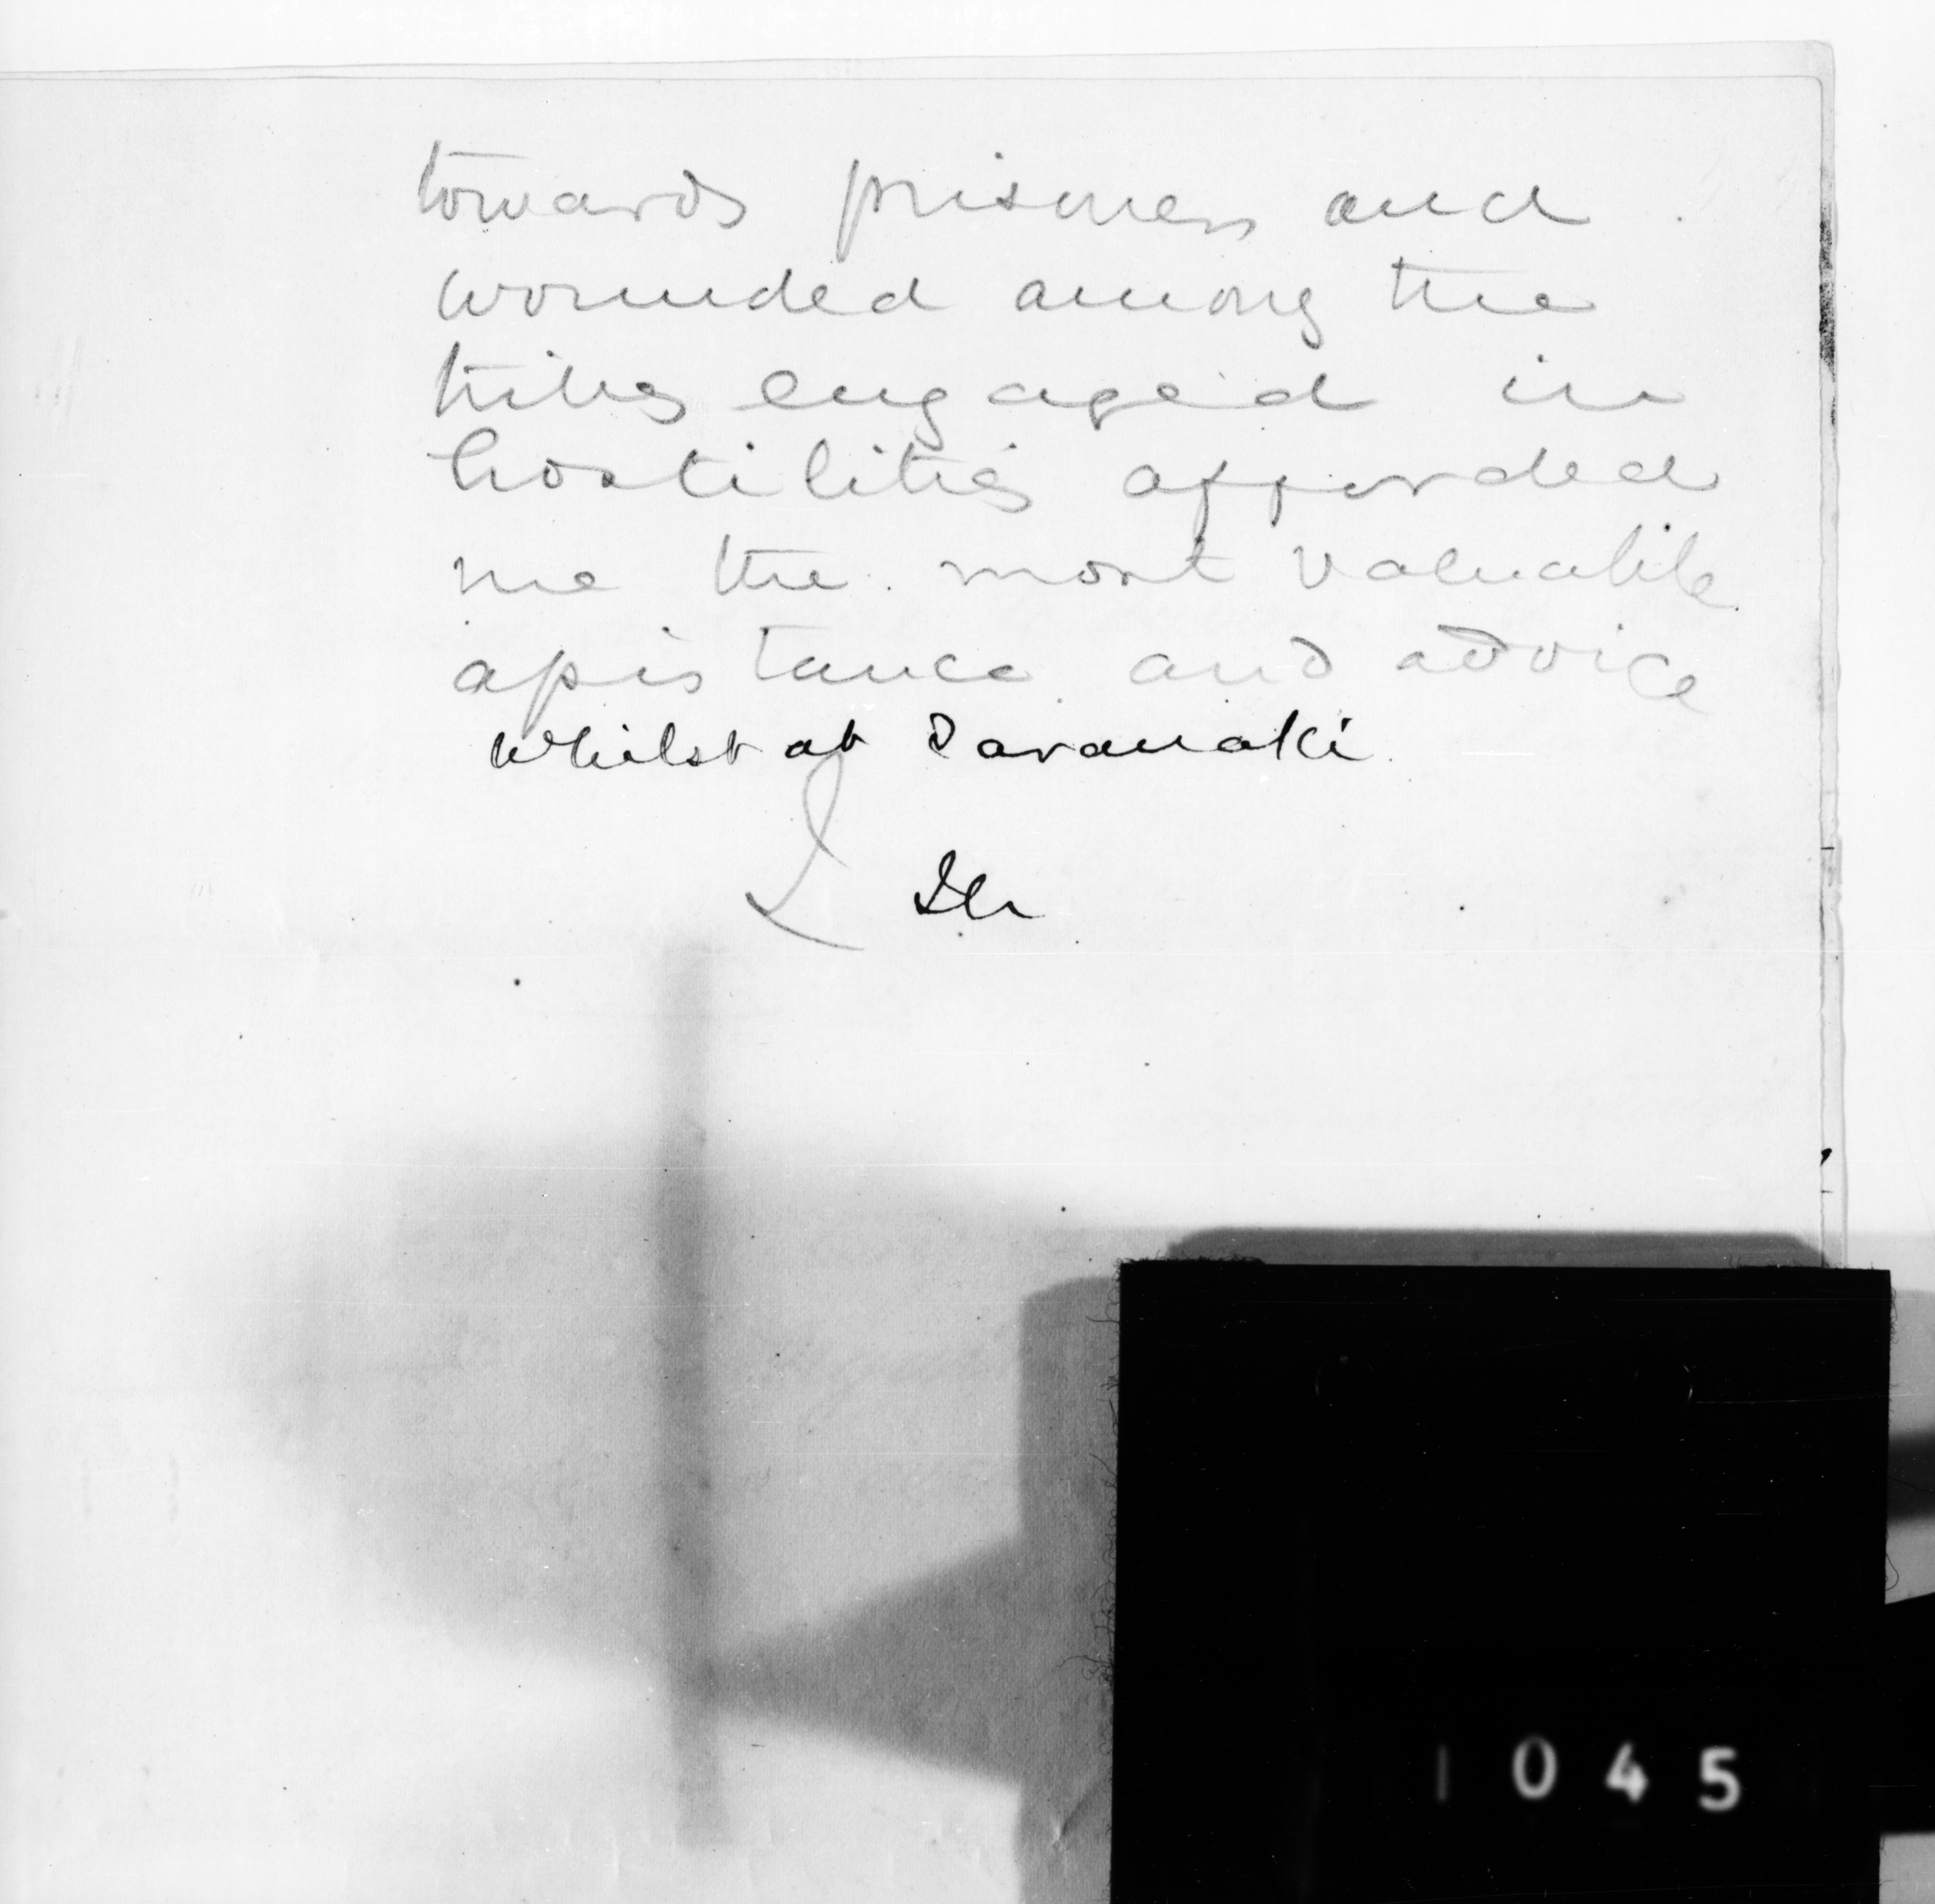 towards prisoners and
wounded among the
tribes engaged in
hostilities afforded
me the most valuable
assistance and advice
whilst at Taranaki
1045